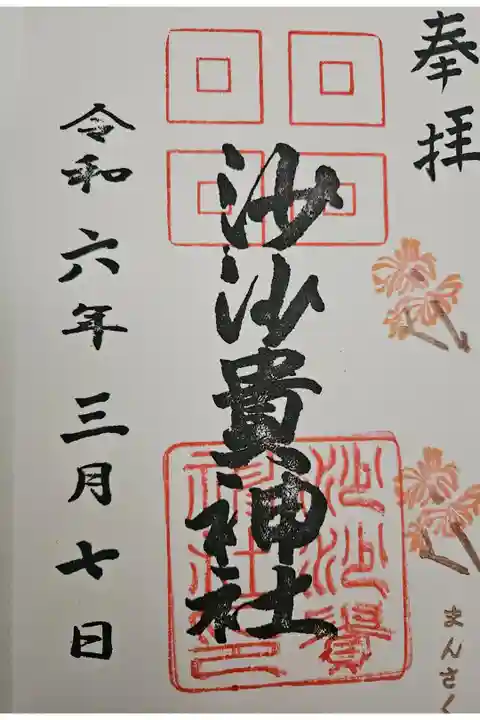 奉拝
まんさく
沙沙貴神社
沙沙貴
神社印
令和六年三月七日